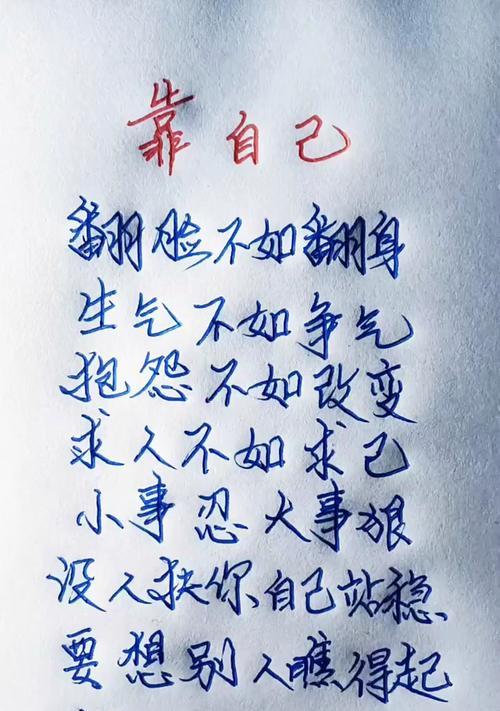 靠自己
翻脸不如翻身
生气不如争气
抱怨不如改变
求人不如求己
小事忍大事狠
没人扶你自己站稳
要想别人瞧得起